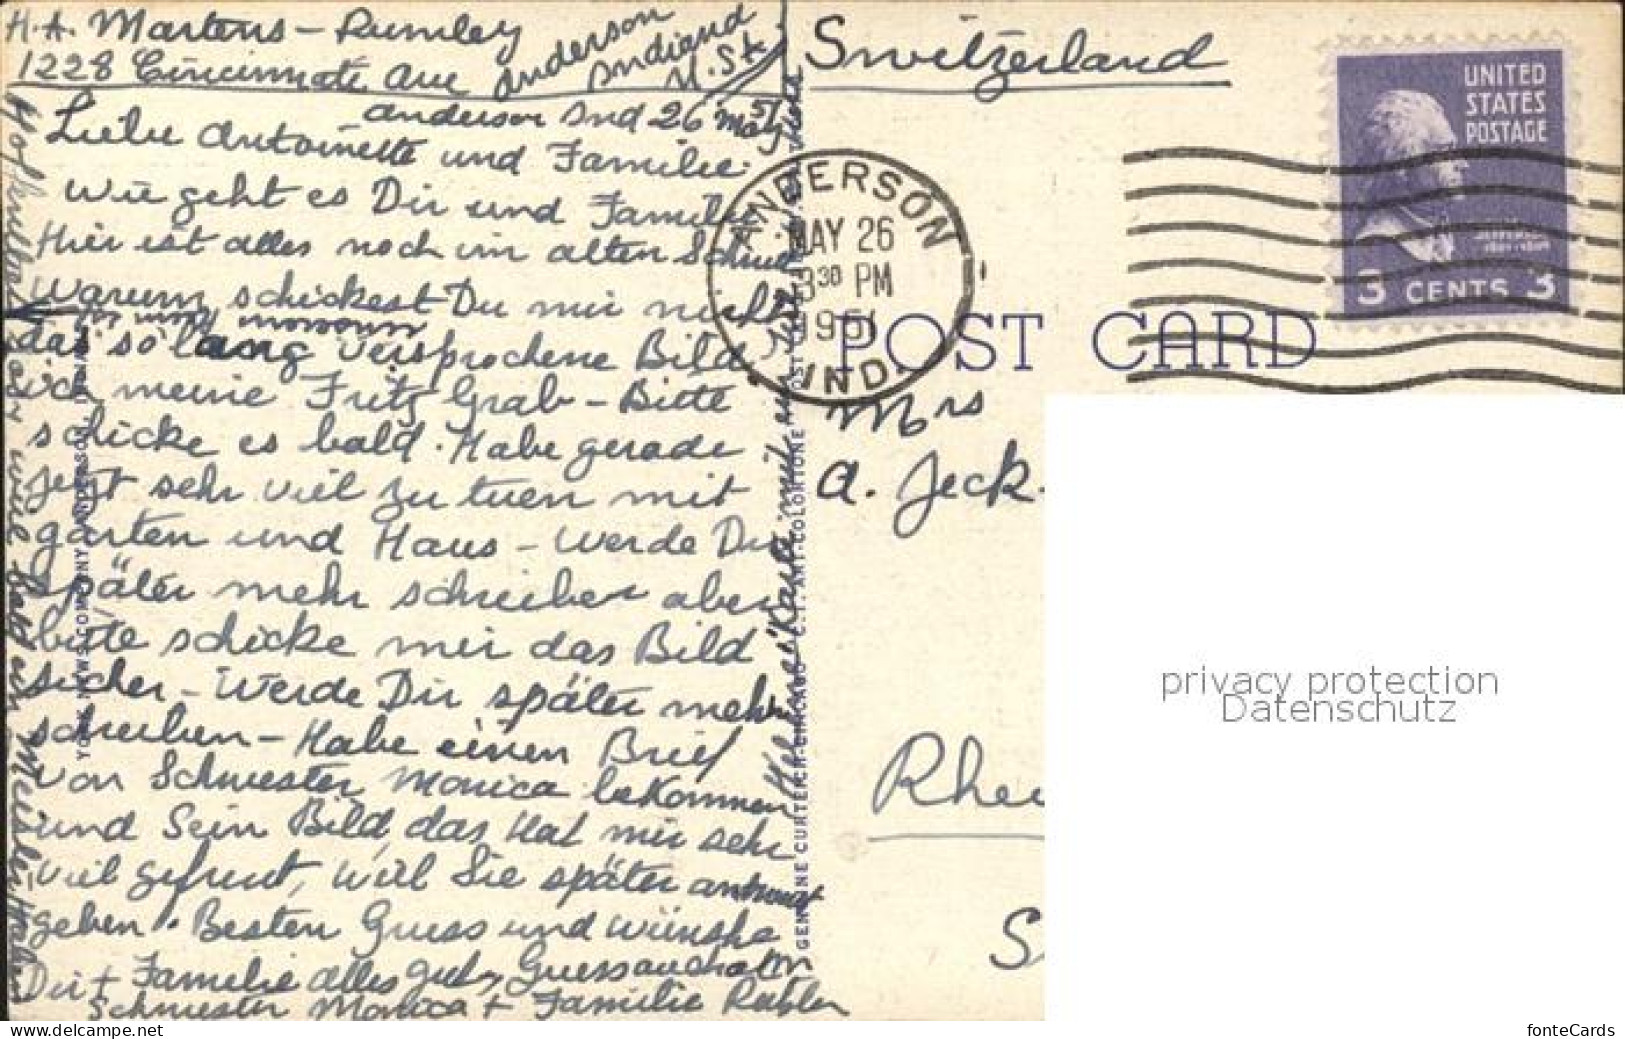 H. A. Martens - Rumley
1228 Cincinnati Ave Anderson
Indiana
U.S.A.
Anderson Ind 26 May 51
Liebe Antoinette und Familie.
Wie geht es Dir und Familie
Hier ist alles noch im alten
Warum schickest Du mir nicht
das so lang versprochene Bild
meine Fritz Grab - Bitte
schicke es bald. Habe gerade
jetzt sehr viel zu tuen mit
garten und Haus - Werde Dir
später mehr schreiben aber
bitte schicke mir das Bild
sicher - Werde Dir später mehr
schreiben - Habe einen Brief
von Schwester Monica bekommen
und Sein Bild, das Hat mir sehr
viel gefreut, will Sie später antwort
geben. Besten Gruss und wünsche
Dir + Familie alles gute, Gruess auch an
Schwester Monica + Familie
Switzerland
UNITED
STATES
POSTAGE
3 CENTS 3
ANDERSON
MAY 26
3 30 PM
1951
IND.
POST CARD
Mrs
A. Jeck
Rhei
S
GENUINE CURTEICH-CHICAGO "C. T. ART-COLORTONE" POST CARD
privacy protection
Datenschutz
fonteCards
https://www.delcampe.net